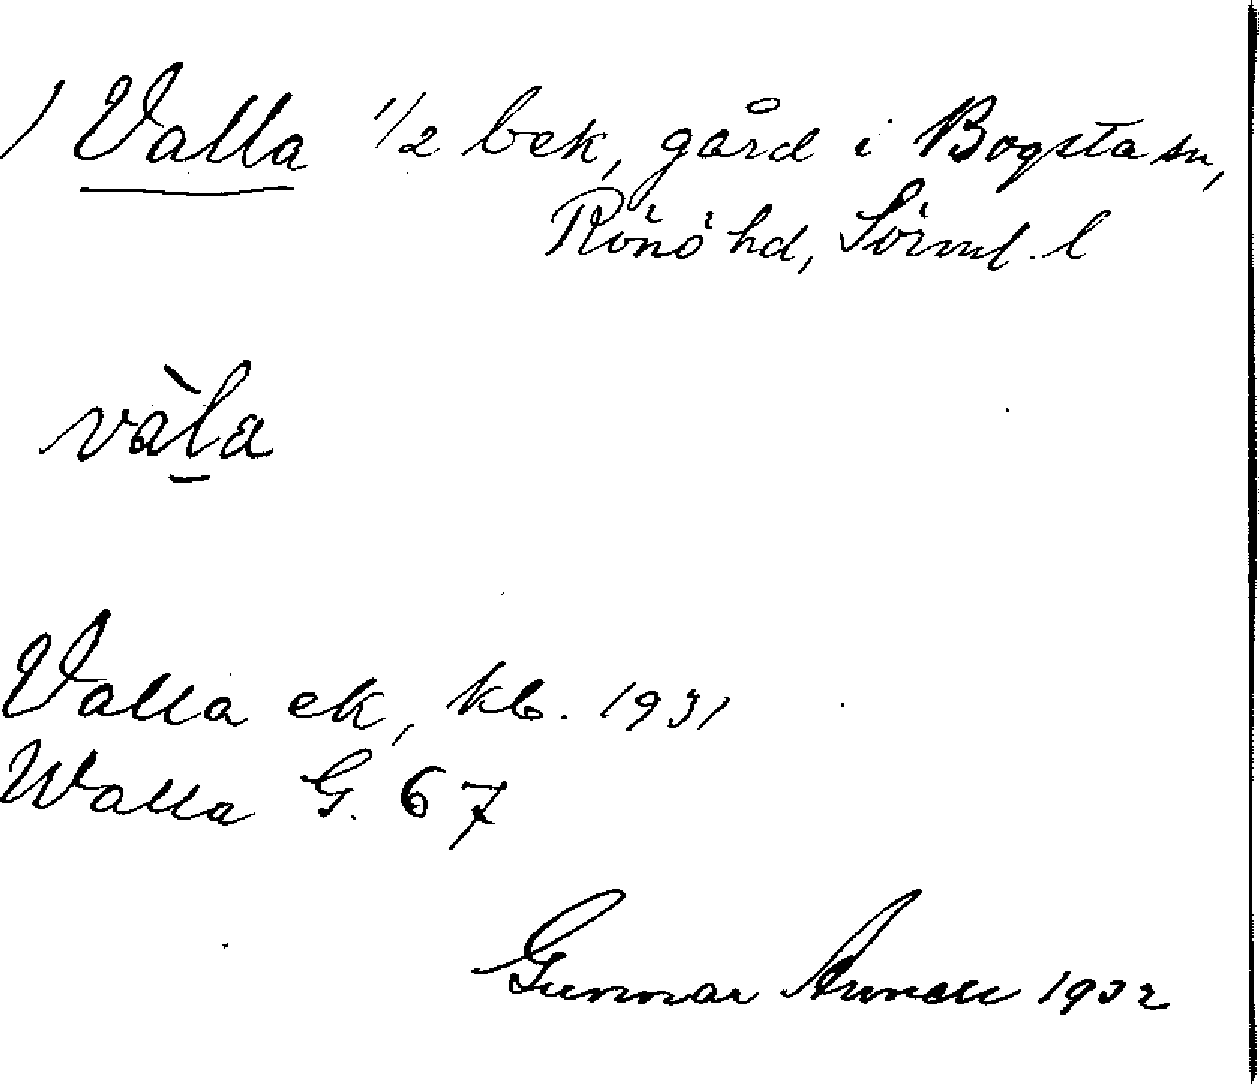 1) Valla 1/2 bek, gård i Bogsta sn,
Rönö hd, Sörml. l
vàl̠a
Valla ek, kb. 1931
Walla G. 67
Gunnar Arnell 1932